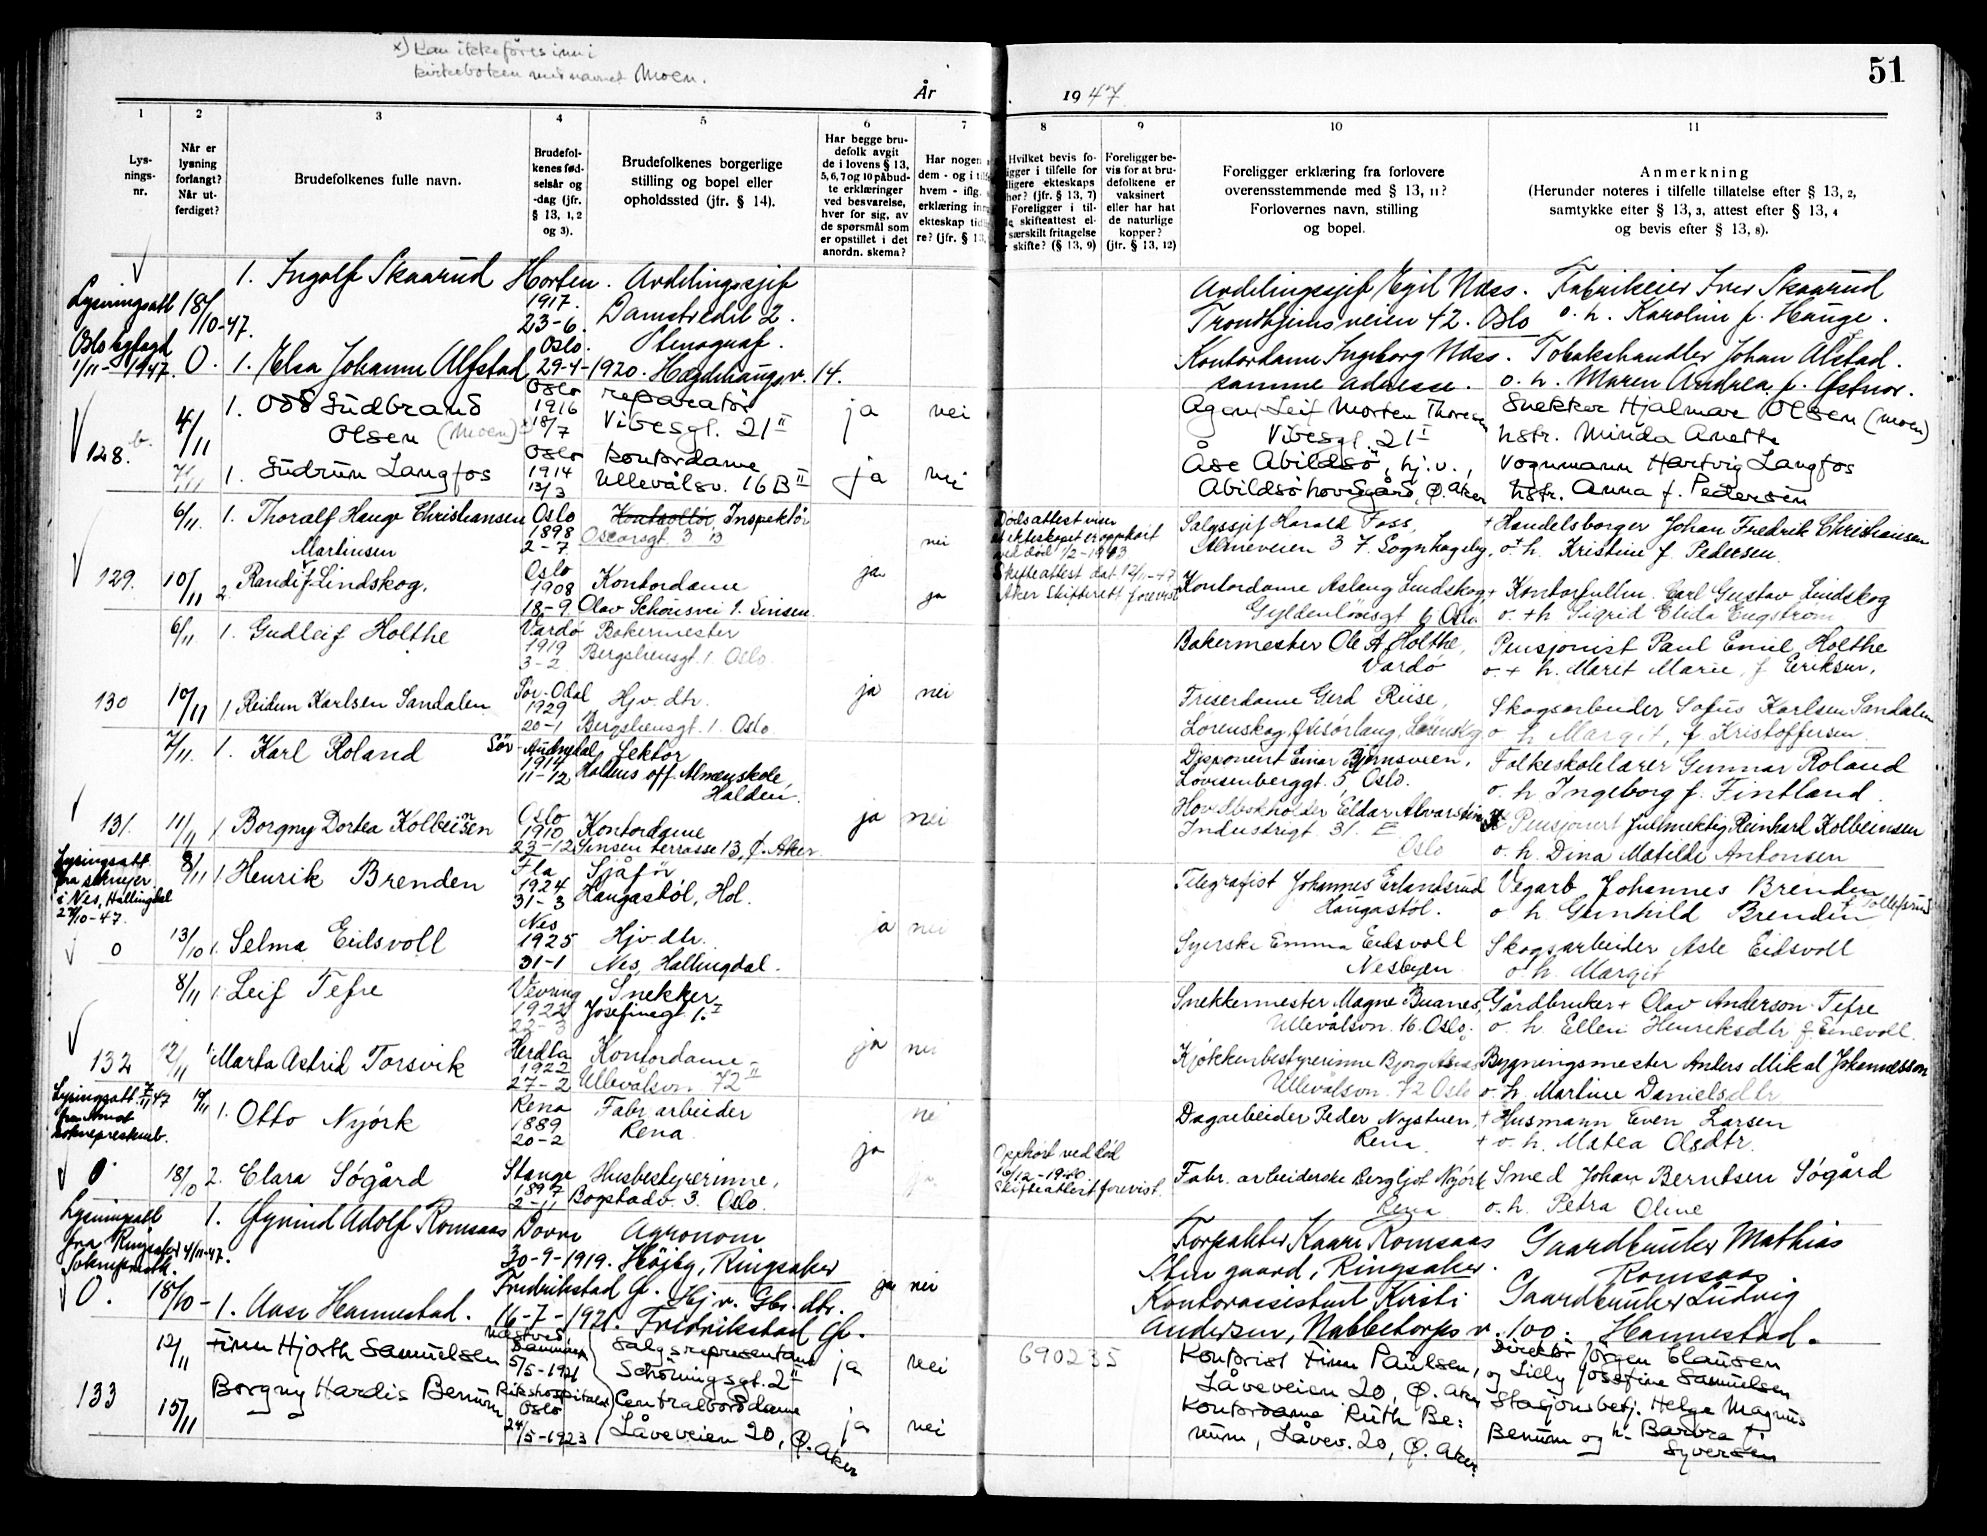 x) Kan ikke føres inn i
kirkeboken med navnet Moen.
År 1947
51
1 2 3 4 5 6 7 8 9 10 11
Lys-
nings-
nr.
Når er
lysning
forlangt?
Når ut-
ferdiget?
Brudefolkenes fulle navn.
Brudefol-
kenes fød-
selsår og
-dag (jfr.
§ 13, 1, 2
og 3).
Brudefolkenes borgerlige
stilling og bopel eller
opholdssted (jfr. § 14).
Har begge bru-
defolk avgit
de i lovens § 13,
5, 6, 7 og 10 påbud-
te erklæringer
ved besvarelse,
hver for sig, av
de spørsmål som
er opstillet i det
anordn. skema?
Har nogen
dem - og i
hvem - iflg.
erklæring
ekteskap
re? (jfr. § 13,
Hvilket bevis fo-
ligger i tilfelle for
tidligere ekteskaps
ophør? (jfr. § 13, 7)
Foreligger i til-
felle skifteattest el-
særskilt fritagelse
skifte? (§ 13, 9)
Foreligger be-
vis for at bru-
defolkene er
vaksinert
eller har hat
de naturlige
kopper?
(jfr. § 13, 12)
Foreligger erklæring fra forlovere
overensstemmende med § 13, 11?
Forlovernes navn, stilling
og bopel.
Anmerkning
(Herunder noteres i tilfelle tillatelse efter § 13, 2,
samtykke efter § 13, 3, attest efter § 13, 4
og bevis efter § 13, 8).
Lysningsatt
Oslo byfogd
1/11-1947.
18/10-47.
1. Ingolf Skaarud Horten. Avdelingssjef
1917.
23-6. Damstredet 2.
Avdelingssjef Egil Næss. Fabrikeier Iver Skaarud
Trondhjemsveien 42. Oslo o. h. Karolin f. Hauge.
O. 1. Elsa Johanne Alfstad Oslo. Stenograf.
29-4-1920. Hegdehaugsv. 14.
Kontordame Ingeborg Næss. Tobakshandler Johan Alstad.
samme adresse. o. h. Maren Andrea f. Østnor.
128.b. 4/11 1. Odd Gudbrand
Olsen (Moen)
Oslo
1916
18/7
reparatør
Vibesgt. 21 II
ja nei
Agent Leif Morten Thoresen
Vibesgt. 21 I
Snekker Hjalmar Olsen (Moen)
hstr. Minda Anette
7/11 1. Gudrun Langfos
Oslo
1914
13/3
kontordame
Ullevålsv. 16 B II
ja nei
Åse Abildsö, hj.v.,
Abildsöhovedgård, Ø. Aker
Vognmann Hartvig Langfos
hstr. Anna f. Pedersen
129. 6/11. 1. Thoralf Hauge Christiansen
Oslo
1898
2-7
Kontrollør, Inspektør
Oscarsgt. 3 B
nei
Dødsattest viser
at ekteskapet er opphørt
ved død 1/2-1943
Skifteattest dat. 12/11-47
Aker Skifterett forevist
Salgssjef Harald Foss,
Almeveien 3 7. Sognhageby,
+ Handelsborger Johan Fredrik Christiansen
o. + h. Kristine f. Pedersen.
10/11 2. Randi f. Lindskog.
Martinsen
Oslo
1908
18-9
Kontordame
Olav Schousvei 1. Sinsen
ja ja
Kontordame Aslaug Lindskog,
Gyldenløvesgt 6 Oslo
+ Kontorfullm. Carl Gustav Lindskog
o. + h. Sigrid Elida Engstrøm
130 6/11. 1. Gudleif Holthe
Vardø
1919
3-2
Bakermester
Bergsliensgt. 1 Oslo.
Bakermester Ole A. Holthe,
Vardø
Pensjonist Paul Emil Holthe
o. + h. Maret Marie, f. Eriksen,
10/11 1. Reidun Karlsen Sandalen
Sør-Odal
1929
20-1
Hjv. dtr.
Bergsliensgt. 1. Oslo
ja nei
Friserdame Gerd Riise,
Lorenskog,
Skogsarbeider Sofus Karlsen Sandalen
o h Margit, f Kristoffersen.
131. 7/11. 1. Karl Roland
Sør-Audnedal
1914
11-12
Lektor
Haldens off. Almenskole,
Halden.
Disponent Einar Bjørnsveen,
Lovisenberggt. 5 Oslo.
Folkeskolelærer Gunnar Roland
o. h Ingeborg f. Fintland.
11/11 1 Borgny Dortea Kolbeinsen
Oslo
1910
23-12
Kontordame
Sinsen terrasse 13, Ø. Aker
ja nei
Hovedbokholder Eldar Alvarstein
Industrigt. 31. II
Oslo
Pensjonert fullmektig Reinhart Kolbeinsen
o. h. Dina Matilde Antonsen
Lysingsatt.
fra sokneprest
i Nes, Hallingdal
27/10-47.
O
8/11 1. Henrik Brenden
Fla
1924
31-3
Sjåfør
Haugastøl, Hol.
Telegrafist Johannes Erlandsrud
Haugastøl.
Vegarb Johannes Brenden
o h. Gunhild Brenden f. Tollefsrud
13/10 1. Selma Eidsvoll
Nes
1925
31-1
Hjv. dtr.
Nes, Hallingdal.
ja nei
Syerske Emma Eidsvoll
Nesbyen
Skogsarbeider Asle Eidsvoll
o. h. Margit
132 8/11 1. Leif Tefre
Vevring
1922
22-3
Snekker
Josefinegt 1. I
Snekkermester Magne Buanes,
Ullevålsvn. 16. Oslo.
Gårdbruker + Olav Anderson Tefre
o. h. Ellen Henriksdtr f. Einevoll.
12/11 1. Marta Astrid Torsvik
Herdla
1922
27-2
Kontordame
Ullevålsvn. 72 II
ja nei
Kjøkkenbestyrerinne Bjørg
Ullevålsvn. 72 Oslo
Bygningsmester Anders Mikal Johannessen
o. h. Martine Danielsdtr
Lysingsatt. 7/11-47
fra Åmot
sokneprestemb.
O
14/11 1. Otto Nyørk
Rena
1889
20-2
Fabr. arbeider
Rena
nei
Dagarbeider Peder Nystuen,
Rena
+ Husmann Even Larsen
+ o. h. Matea Olsdtr.
18/10 2. Clara Søgård
Stange
1897
2-11
Husbestyrerinne,
Bogstadv. 3. Oslo.
ja ja
Opphørt ved død
16/12-1940.
Skifteattest forevist.
Fabr. arbeiderske Bergljot Nyørk
Rena
Smed Johan Berntsen Søgård
o. h. Petra Oline
Lysningsatt
fra Ringsaker 4/11-47.
Sokneprestk.
O.
1. Øyvind Adolf Romsaas
Dovre
30-9-1919.
Agronom
Højby, Ringsaker
Forpakter Kaare Romsaas
Stengaard, Ringsaker.
Gaardbruker Mathias
Romsaas
18/10 - 1. Aase Hannestad.
Fredrikstad Gl.
16-7-1921.
Hj.v. Gbr. dtr.
Fredrikstad Gl.
ja nei
Kontorassistent Kirsti
Andersen, Nabbetorpsv. 100.
Gaardbruker Ludvig
Hannestad.
133 12/11 Finn Hjorth Samuelsen
Næstved,
Danmark
5/5-1921
Salgsrepresentant
Schöningsgt. 2 II
ja nei
690235
Kontorist Finn Paulsen,
Låveveien 20, Ø. Aker
Direktør Jørgen Clausen
og Lilly Josefine Samuelsen
15/11 Borgny Hardis Benum
Rikshospitalet
Oslo
24/5-1923
Centralborddame
Låveveien 20, Ø. Aker
ja nei
Kontordame Ruth Be-
num, Låvev. 20, Ø. Aker
Stasjonsbetj. Helge Magnus
Benum og h. Barbra f.
Syversen